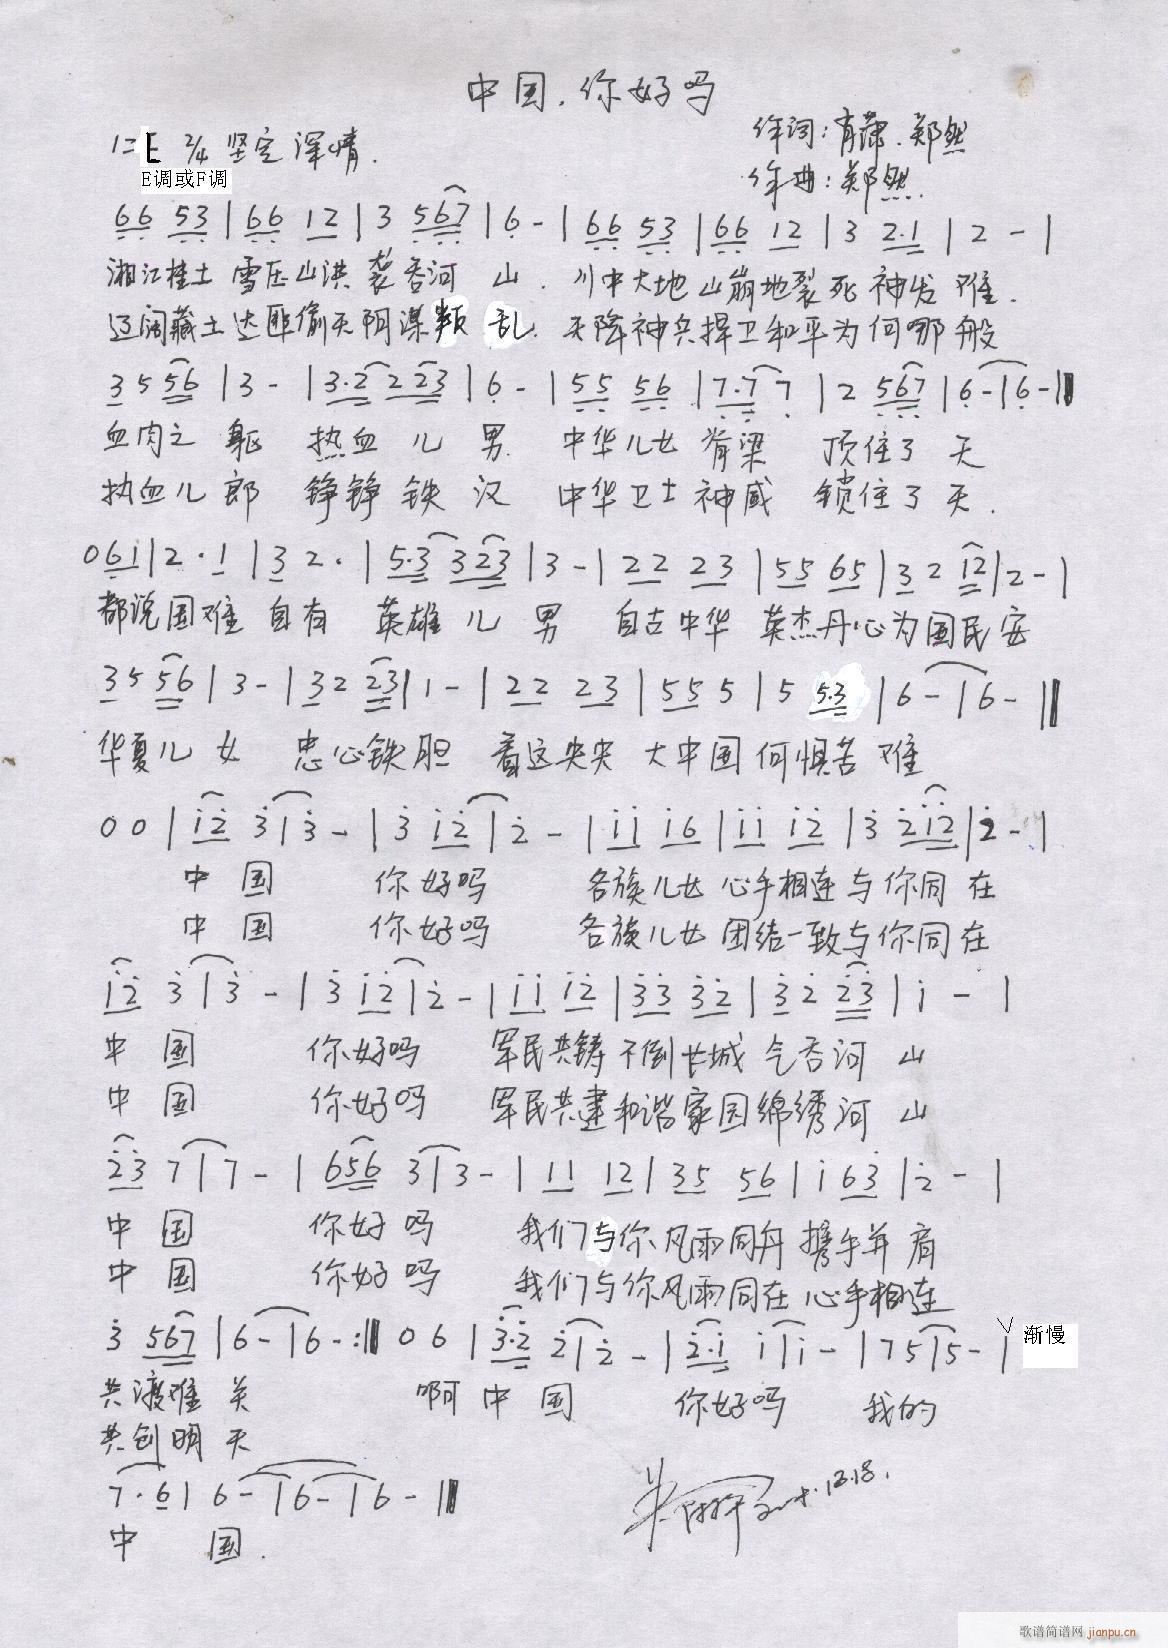 中国,你好吗
作词:肖萧、郑然
1=E 2/4 坚定 深情.
E调或F调
作曲:郑然
66 53 | 66 12 | 3 567 | 6 - | 66 53 | 66 12 | 3 2·1 | 2 - |
湘江桂土 雪压山洪 袭吞河 山. 川中大地 山崩地裂 死神发难.
辽阔藏土 达匪偷天阴谋叛乱. 天降神兵捍卫和平为何哪般
3 5 56 | 3 - | 3·2 2 23 | 6 - | 55 56 | 7·7 7 | 2 567 | 6 - | 6 - ‖
血肉之躯 热血儿男. 中华儿女 脊梁 顶住了天
热血儿郎 铮铮铁汉 中华卫士神威 锁住了天.
0 61 | 2·1 | 3 2· | 5·3 3 23 | 3 - | 22 23 | 55 65 | 3 2 12 | 2 - |
都说国难 自有 英雄儿男 自古中华 英杰丹心为国民安
3 5 56 | 3 - | 32 23 | 1 - | 22 23 | 55 5 | 5 5·3 | 6 - | 6 - ‖
华夏儿女 忠心铁胆 看这央央 大中国何惧苦难
0 0 | i2 3 | 3 - | 3 i2 | 2 - | ii i6 | ii i2 | 3 2i2 | 2 - |
中国 你好吗 各族儿女 心手相连与你同在
中国 你好吗 各族儿女 团结一致与你同在
i2 3 | 3 - | 3 i2 | 2 - | ii i2 | 33 32 | 3 2 23 | i - |
中国 你好吗 军民共铸 不倒长城 气吞河山
中国 你好吗 军民共建和谐家园绵绣河山
23 7 | 7 - | 656 3 | 3 - | 11 12 | 35 56 | i 63 | 2 - |
中国 你好吗 我们与你风雨同舟 携手并肩
中国 你好吗 我们与你风雨同在 心手相连
3 567 | 6 - | 6 - :‖ 0 6 | 3·2 2 | 2 - | 2·i i | i - | 7 5 | 5 - | V 渐慢
共渡难关 啊 中国 你好吗 我的
共创明天
7·6 | 6 - | 6 - | 6 - ‖
12.18.
中国.
歌谱简谱网
jianpu.cn